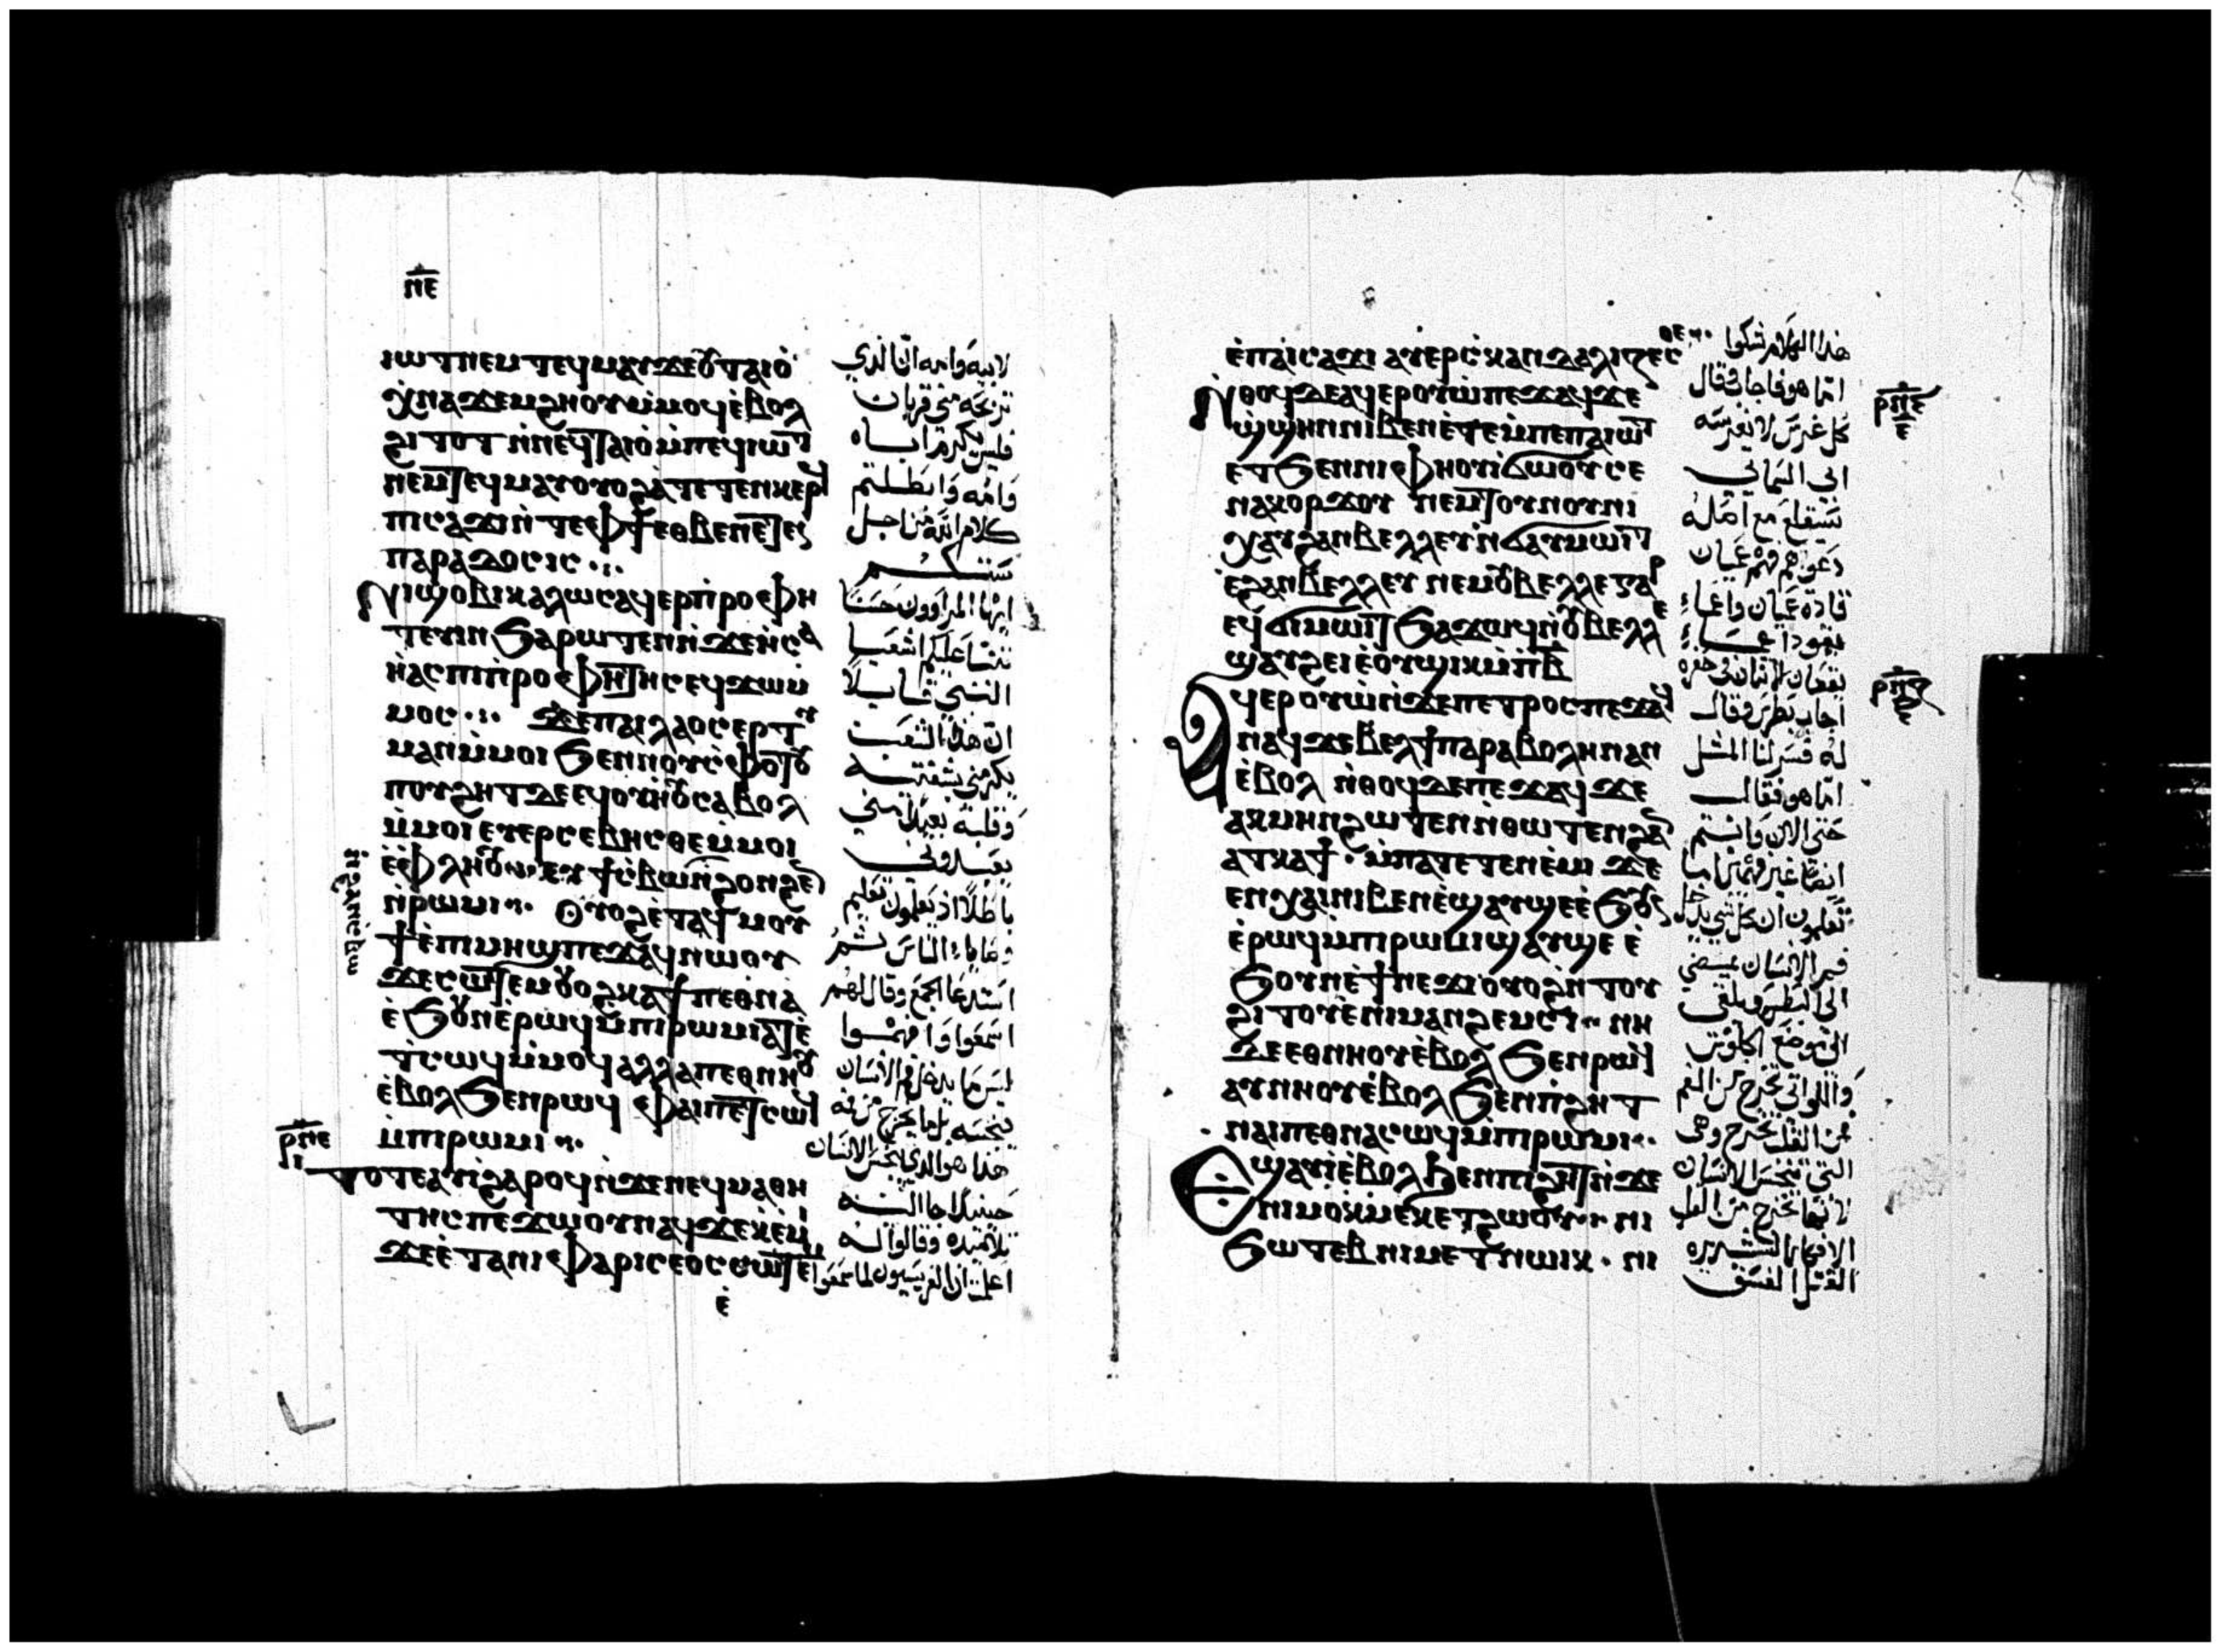 ⲛⲉ
ⲓⲱⲧ ⲛⲉⲙ ⲧⲉϥⲙⲁⲩ ϫⲉ ⲟⲩⲧⲁⲓⲟ
ϫⲛⲁϫⲉⲙϩⲏⲟⲩ ⲙⲙⲟϥ ⲉⲃⲟⲗ
ϩⲓⲧⲟⲧ ⲛⲛⲉϥⲧⲁⲓⲟ ⲙⲡⲉϥⲓⲱⲧ
ⲛⲉⲙ ⲧⲉϥⲙⲁⲩ ⲟⲩⲟϩ ⲁⲧⲉⲧⲉⲛⲕⲉⲣϥ
ⲡⲓⲥⲁϫⲓ ⲛⲧⲉ ⲫϯ ⲉⲑⲃⲉ ⲛⲉⲧⲉⲥ
ⲡⲁⲣⲁⲇⲟⲥⲓⲥ
ⲛⲓϣⲟⲃⲓ ⲕⲁⲗⲱⲥ ⲁϥⲉⲣⲡⲣⲟⲫⲏ
ⲧⲉⲩⲓⲛ ϧⲁⲣⲱⲧⲉⲛ ⲛϫⲉ ⲏⲥⲁ
ⲏⲁⲥ ⲡⲓⲡⲣⲟⲫⲏⲧⲏⲥ ⲉϥϫⲱⲙ
ⲙⲟⲥ ϫⲉ ⲡⲁⲓⲗⲁⲟⲥ ⲉⲣⲧ
ⲙⲁⲛ ⲙⲙⲟⲓ ϧⲉⲛ ⲛⲟⲩⲥⲫⲟⲧⲟⲩ
ⲡⲟⲩϩⲏⲧ ⲇⲉ ⲉϥⲟⲩⲏⲟⲩ ⲥⲁⲃⲟⲗ
ⲙⲙⲟⲓ ⲉⲩⲉⲣⲥⲉⲃⲏⲥⲑⲉ ⲙⲙⲟⲓ
ⲉⲫⲗⲏⲟⲩ ⲉⲩϯⲥⲃⲱ ⲛϩⲟⲛϩⲉⲛ
ⲛϩⲁⲛⲥⲃⲱ
ⲛⲣⲱⲙⲓ ⲟⲩⲟϩ ⲉⲧⲁϥⲙⲟⲩ
ϯ ⲉⲡⲓⲙⲏϣ ⲡⲉϫⲁϥ ⲛⲱⲟⲩ
ϫⲉ ⲥⲱⲧⲉⲙ ⲟⲩⲟϩ ⲕⲁϯ ⲡⲉⲑⲛⲁ
ⲉϧⲟⲩⲛ ⲉⲣⲱϥ ⲙⲡⲓⲣⲱⲙⲓ ⲁⲧⲉ
ⲧⲥⲱϥ ⲙⲙⲟϥ ⲁⲗⲗⲁ ⲡⲉⲑⲛⲏⲟⲩ
ⲉⲃⲟⲗ ϧⲉⲛ ⲣⲱϥ ⲫⲁⲓ ⲡⲉⲧⲥⲱϥ
ⲙⲡⲓⲣⲱⲙⲓ
ⲣⲛⲉ
ⲓ
ⲧⲟⲧⲉ ⲁⲩⲓ ϩⲁⲣⲟϥ ⲛϫⲉ ⲛⲉϥⲙⲁⲑⲏ
ⲧⲏⲥ ⲡⲉϫⲱⲟⲩ ⲛⲁϥ ϫⲉ ⲕⲉⲙⲓ
ϫⲉ ⲉⲧⲁ ⲛⲓⲫⲁⲣⲓⲥⲉⲟⲥ ⲥⲱⲧⲉⲙ
ⲉ
لابيه وامه ان الذي
تربحه مني قربان
فليس يكرم اباه
وامه وابطلتم
كلام الله من اجل
سنتكم
ايها المراوون حسنا
تنبا عليكم اشعيا
النبي قايلا
ان هذا الشعب
يكرمني بشفتيه
وقلبه بعيدا مني
يعبدوني
باطلا اذ يعلمون تعليم
وصايا الناس ثم
استدعا الجمع وقال لهم
اسمعوا وافهموا
ليس ما يدخل فم الانسان
ينجسه بل ما يخرج من فيه
هذا هو الذي ينجس الانسان
حينيذ جا اليه
تلاميذه وقالوا له
اعلمت ان الفريسيون لما سمعوا
ⲉⲡⲁⲓⲥⲁϫⲓ ⲁⲩⲉⲣⲥⲕⲁⲛⲇⲁⲗⲓⲍⲉⲥⲑⲉ
ⲛⲑⲟϥ ⲇⲉ ⲁϥⲉⲣⲟⲩⲱ ⲡⲉϫⲁϥ ϫⲉ
ϣϣⲏⲛ ⲛⲓⲃⲉⲛ ⲉⲧⲉⲙⲡⲉ ⲡⲁⲓⲱⲧ
ⲉⲧ ϧⲉⲛ ⲛⲓⲫⲏⲟⲩⲓ ϭⲱⲟⲩ ⲥⲉ
ⲛⲁⲕⲟⲣϫⲟⲩ ⲛⲉⲙ ⲧⲟⲩⲛⲟⲩⲛⲓ
ⲭⲁⲩ ϩⲁⲛⲃⲉⲗⲗⲉⲩ ⲛϭⲁⲩⲙⲱⲓⲧ
ⲉϩⲁⲛⲃⲉⲗⲗⲉⲩ ⲛⲉⲙ ⲟⲩⲃⲉⲗⲗⲉ ⲅⲁⲣ
ⲉϥϭⲓⲙⲱⲓⲧ ϧⲁϫⲱϥ ⲛⲟⲩⲃⲉⲗⲗⲉ
ϣⲁⲩϩⲉⲓ ⲉⲟⲩϣⲓⲕ ⲙⲡⲃ
ⲁϥⲉⲣⲟⲩⲱ ⲛϫⲉ ⲡⲉⲧⲣⲟⲥ ⲡⲉϫⲁϥ
ⲛⲁϥ ϫⲉ ⲃⲉⲗ ϯⲡⲁⲣⲁⲃⲟⲗⲏ ⲛⲁⲛ
ⲉⲃⲟⲗ ⲛⲑⲟϥ ⲇⲉ ⲡⲉϫⲁϥ ϫⲉ
ⲁⲕⲙⲏⲛ ϩⲱⲧⲉⲛ ⲛⲑⲱⲧⲉⲛ ϩⲁⲛ
ⲁⲧⲕⲁϯ ⲙⲡⲁⲧⲉⲧⲉⲛⲉⲙⲓ ϫⲉ
ⲉⲛⲭⲁⲓ ⲛⲓⲃⲉⲛ ⲉϣⲁⲩϣⲉ ⲉϧⲟⲩⲛ
ⲉⲣⲱϥ ⲙⲡⲓⲣⲱⲙⲓ ϣⲁⲩϣⲉ ⲉ
ϧⲟⲩⲛ ⲉϯⲛⲉϫⲓ ⲟⲩⲟϩ ⲛⲧⲟⲩ
ϩⲓⲧⲟⲩ ⲉⲡⲓⲙⲁⲛϩⲉⲙⲥⲓ ⲛⲏ
ⲇⲉ ⲉⲑⲛⲏⲟⲩ ⲉⲃⲟⲗ ϧⲉⲛ ⲣⲱϥ
ⲁⲩⲛⲏⲟⲩ ⲉⲃⲟⲗ ϧⲉⲛ ⲡϩⲏⲧ
ⲛⲁⲓ ⲡⲉⲑⲛⲁⲥⲱϥ ⲙⲡⲓⲣⲱⲙⲓ
ⲉϣⲁⲩⲓ ⲉⲃⲟⲗ ϧⲉⲛ ⲡⲓϩⲏⲧ ⲛϫⲉ
ⲛⲓⲙⲟⲕⲙⲉⲕ ⲉⲧϩⲱⲟⲩ ⲛⲓ
ϧⲱⲧⲉⲃ ⲛⲓⲙⲉⲧⲛⲱⲓⲕ ⲛⲓ
هذا الكلام شكوا
اما هو فاجاب وقال
كل غرس لا يغرسه
ابي السماي
يستقلع مع اصله
دعوهم فهم عميان
قادة عميان واعما
يقود اعما
يقعان الاثنان في حفرة
اجاب بطرس وقال
له فسر لنا المثل
اما هو فقال
حتى الان وانتم
ايضا غير فهمين اما
تعلمون ان كل شي يدخل
فم الانسان يمضي
الى البطن ويلقى
الى موضع الجلوس
واللواتي تخرج من الفم
من القلب تخرج وهى
التي تنجس الانسان
لانها تخرج من القلب
الافكار الشريره
القتل الفسق
ⲣⲛⲋ
ⲉ
ⲣⲛⲍ
ⲉ